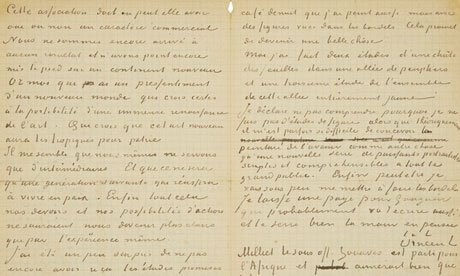 Cette association doit ou peut elle avoir
oui ou non un caractere commercant
Nous ne sommes encore arrivé à
aucun resultat et n'avons point encore
mis le pied sur un continent nouveau
Or moi qui ai un presentiment
d'un nouveau monde qui crois certes
à la possibilité d'une immense renaissance
de l'art. Qui crois que cet art nouveau
aura les tropiques pour patrie.
Il me semble que nous mêmes ne servons
que d'intermediaires. Et que ce ne sera
qu'une generation suivante qui reussira
à vivre en paix. Enfin tout cela
nos devoirs et nos possibilités d'action
ne sauraient nous devenir plus clairs
que par l'expérience même.
J'ai été un peu surpris de ne pas
encore avoir reçu les études promises
café de nuit que j'ai peint aussi mais avec
des figures vues dans les bordels. Cela promet
de devenir une belle chose.
Moi j'ai fait deux études d'une chute
des feuilles dans une allée de peupliers
et une troisieme étude de l'ensemble
de cette allée entièrement jaune.
Je déclare ne pas comprendre pourquoi je ne
fais pas d'études de figure alors que théoriquement
il m'est parfois si difficile de concevoir la
peinture de l'avenir comme autre chose
qu'une nouvelle série de portraitistes puissants
simples et comprehensibles à tout le
grand public. Enfin peut etre je
vais sous peu me mettre à faire les bordels.
Je laisse une page pour Gauguin
qui probablement va t'ecrire aussi
et te serre bien la main en pensée
t. à t.
Vincent
Milliet le sous off. Zouaves est parti pour
l'Afrique et aimerait bien que